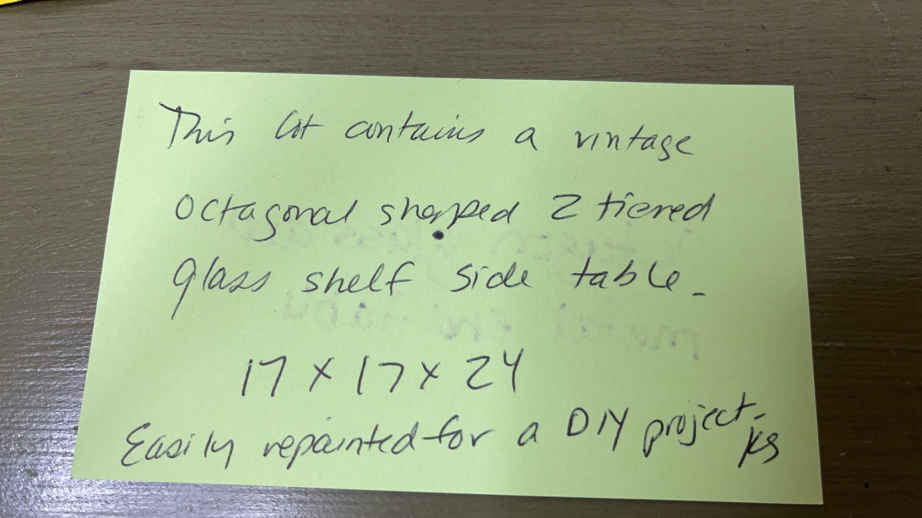 This lot contains a vintage
octagonal shapped 2 tiered
glass shelf side table.
17 x 17 x 24
Easily repainted for a DIY project.
KS